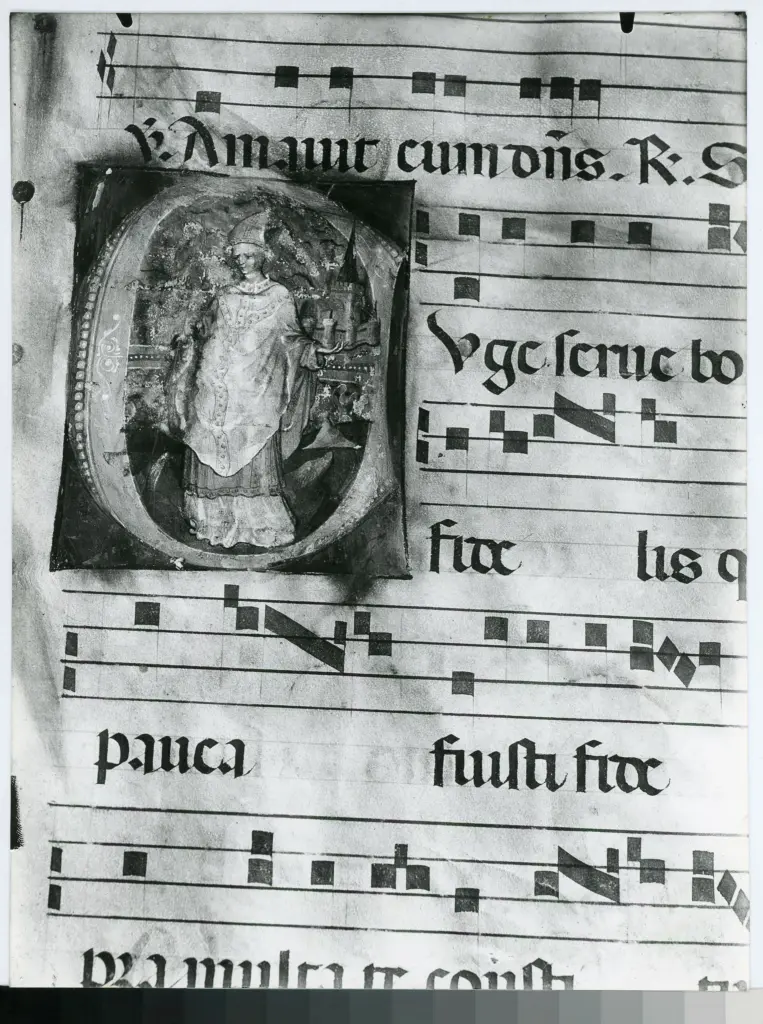 ℣. Amauit eum dn̄s. R. S
Uge serue bo
fide lis q
pauca fuisti fide
pra multa te consti tu